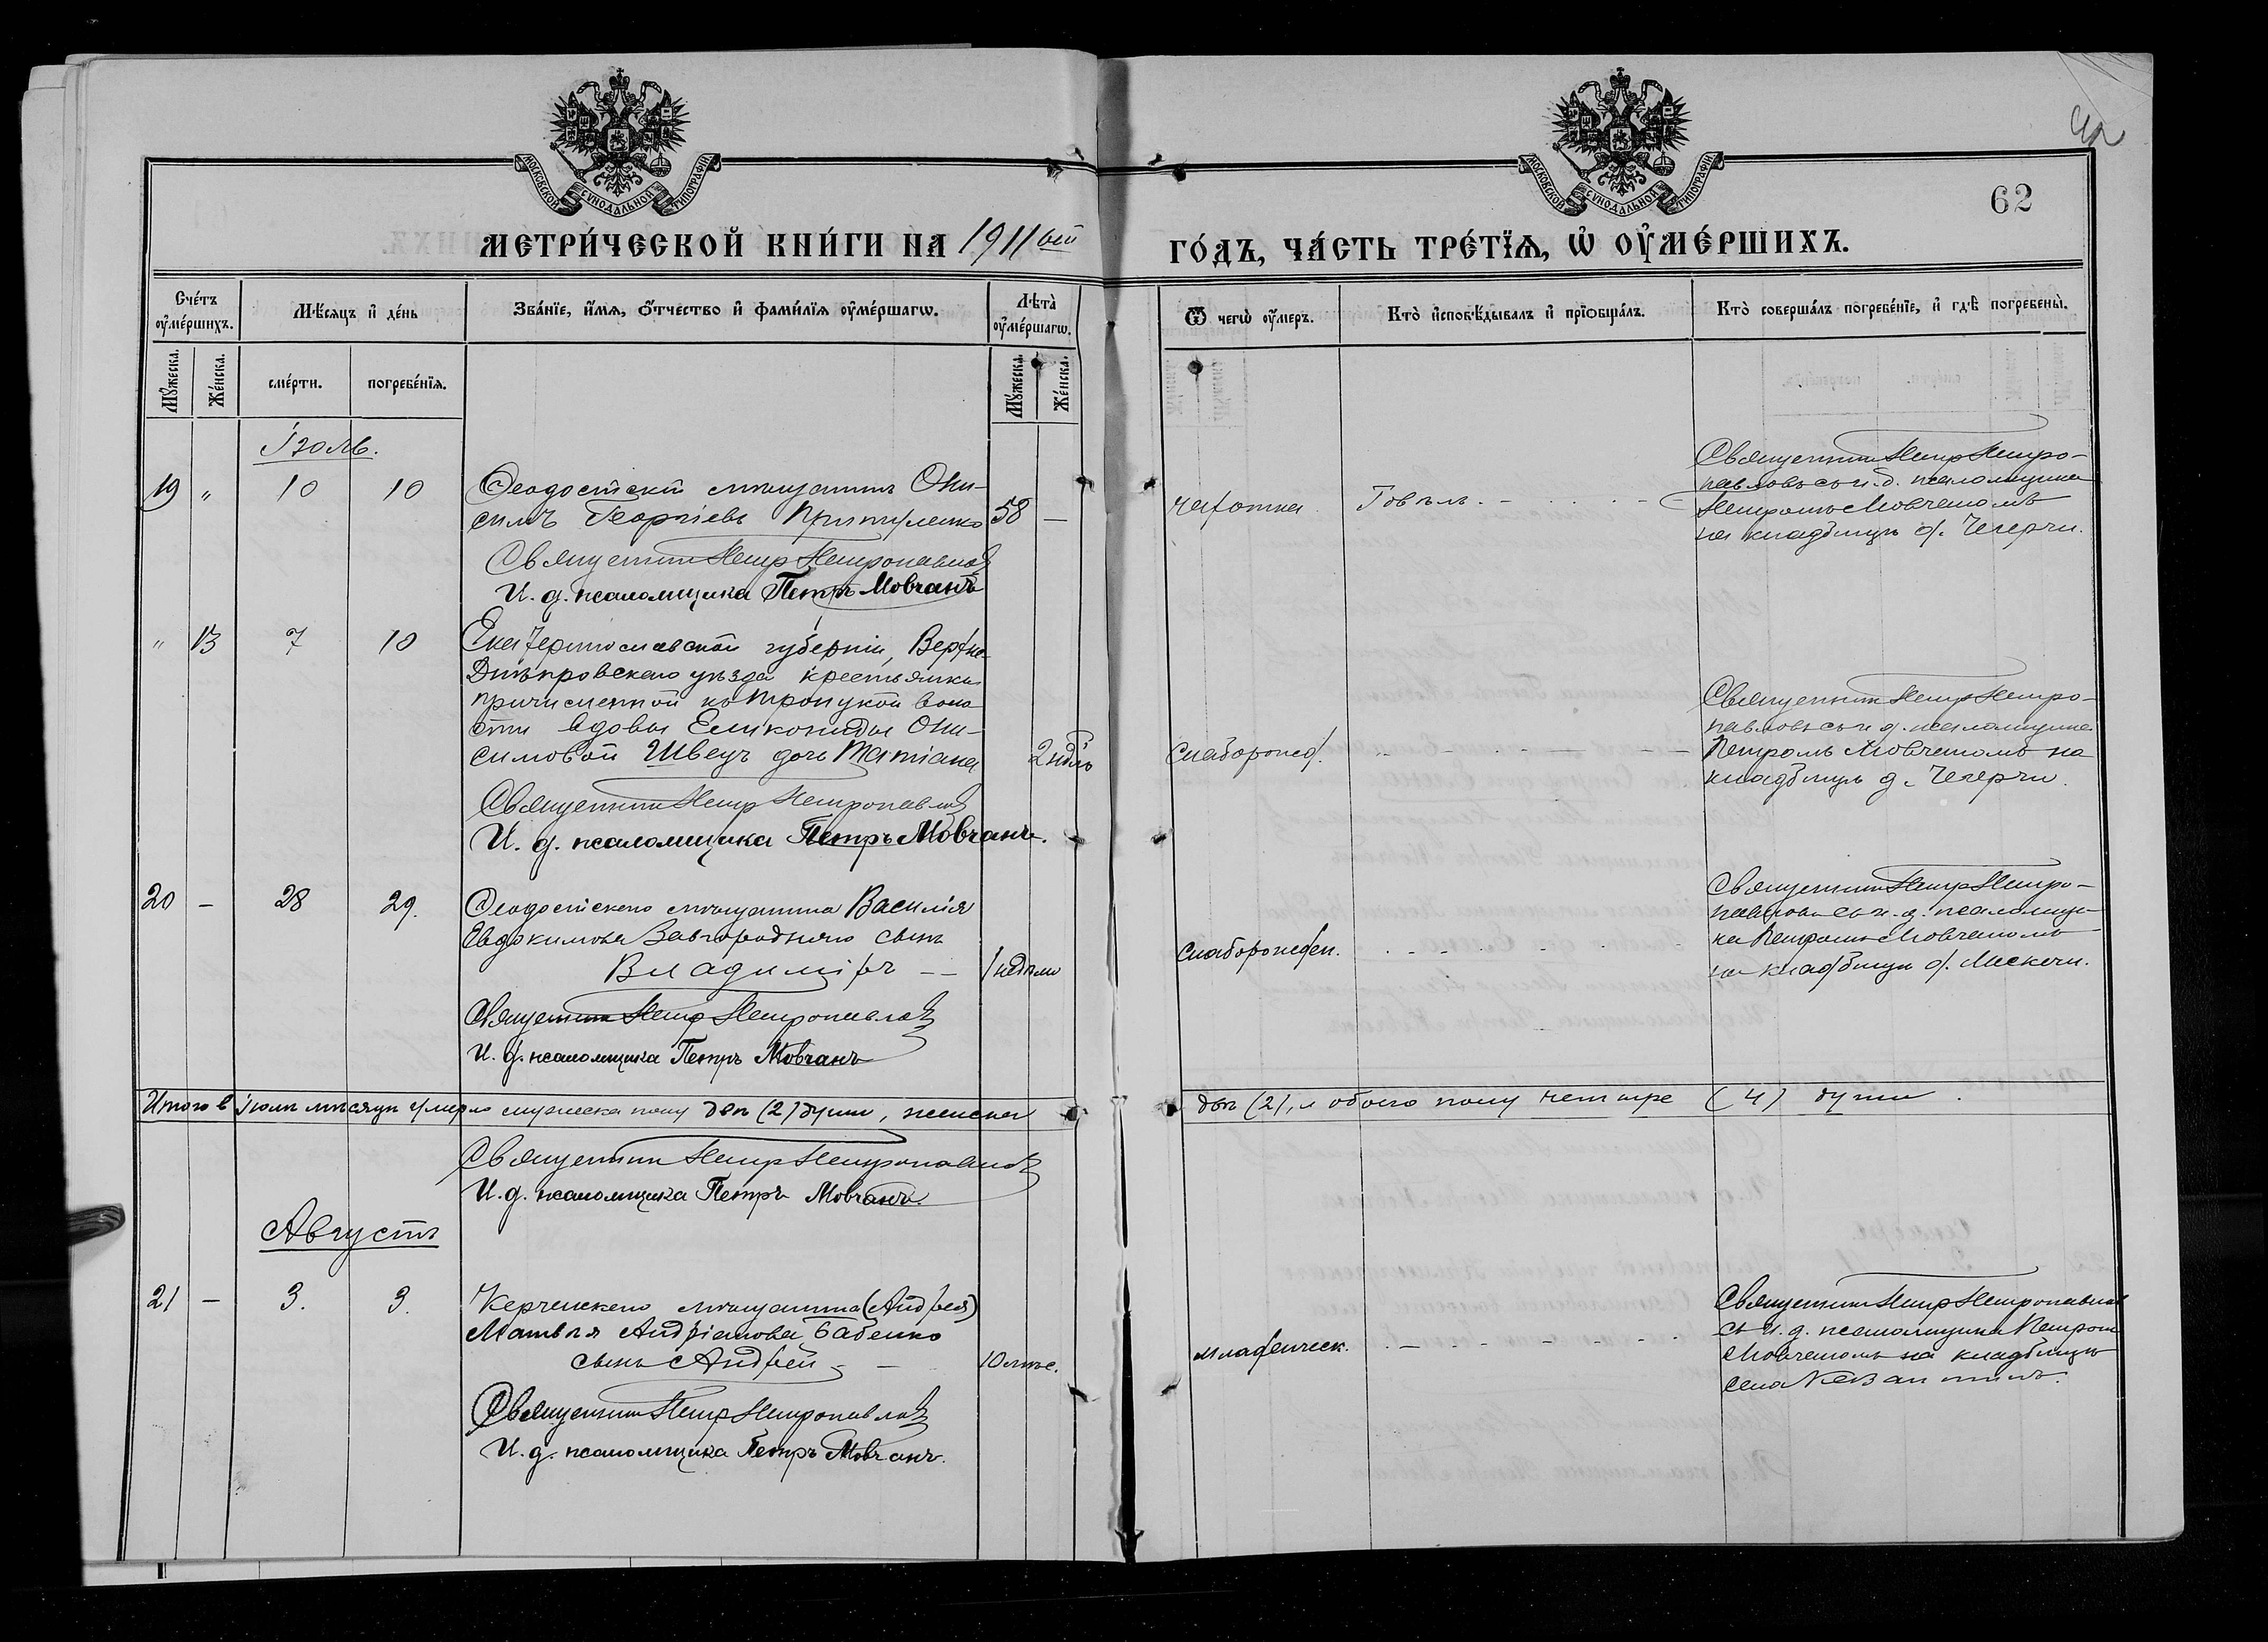 МОСКОВСКОЙ СУНОДАЛЬНОЙ ТИПОГРАФІИ
МОСКОВСКОЙ СУНОДАЛЬНОЙ ТИПОГРАФІИ
62
МЕТРИ́ЧЕСКОЙ КНИ́ГИ НА 1911ый
ГО́ДЪ, ЧА́СТЬ ТРЕ́ТІѦ, Ѡ҆ ОУ҆МЕ́РШИХЪ.
Сче́тъ оу҆ме́ршихъ.
Мѣ́сяцъ и҆ де́нь
Зва́нїе, и҆́мѧ, ѻ҆́тчество и҆ фами́лїѧ оу҆ме́ршагѡ.
Лѣта̀ оу҆ме́ршагѡ.
Ѿ чегѡ̀ оу҆́меръ.
Кто̀ и҆сповѣ́дывалъ и҆ прїѡбща́лъ.
Кто̀ соверша́лъ погребе́нїе, и҆ гдѣ̀ погребены̀.
Мꙋ́жеска.
Же́нска.
сме́рти.
погребе́нїѧ.
Мꙋ́жеска.
Же́нска.
Іюль.
19 " 10 10 Ѳеодосійскій мѣщанинъ Они-
симъ Георгіевъ 58 —
Священникъ Петръ Петропавлов
И. д. псаломщика Петръ Мовчанъ
чахотка Говѣлъ. -
Священникъ Петръ Петро-
павловъ съ и. д. псаломщика
Петромъ Мовчаномъ
на кладбищѣ д.
" 13 7 10 Екатеринославской губерніи, Верхне-
Днѣпровскаго уѣзда крестьянки
причисленной къ Троицкой воло
сти вдовы Еликониды Они-
симовой Швецъ дочь Татіана 2 ндль
Священникъ Петръ Петропавлов
И. д. псаломщика Петръ Мовчанъ.
Слаборожд.
Священникъ Петръ Петро-
павловъ съ и д. псаломщика
Петромъ Мовчаномъ на
кладбищѣ д.
20 — 28 29. Ѳеодосійскаго мѣщанина Василія
Евдокимова Завгородняго сынъ
Владиміръ — 1 недѣли
Священникъ Петръ Петропавлов
И. д. псаломщика Петръ Мовчанъ
Слаборожден.
Священникъ Петръ Петро-
павловъ съ и. д. псаломщи-
ка Петромъ Мовчаномъ
на кладбищѣ д.
Итого в іюлѣ мѣсяцѣ умерло мужеска полу двѣ (2) души, женска
двѣ (2), и обоего полу четыре (4) души.
Священникъ Петръ Петропавлов
И. д. псаломщика Петръ Мовчанъ.
Августъ
21 — 3. 3. Керченскаго мѣщанина (Андрея)
Матвѣя Андріанова Бабенко
сынъ Андрей — 10 мѣс.
Священникъ Петръ Петропавлов
И. д. псаломщика Петръ Мовчанъ.
младенческ.
Священникъ Петръ Петропавлов
съ И. д. псаломщика Петромъ
Мовчаномъ на кладбищѣ
села